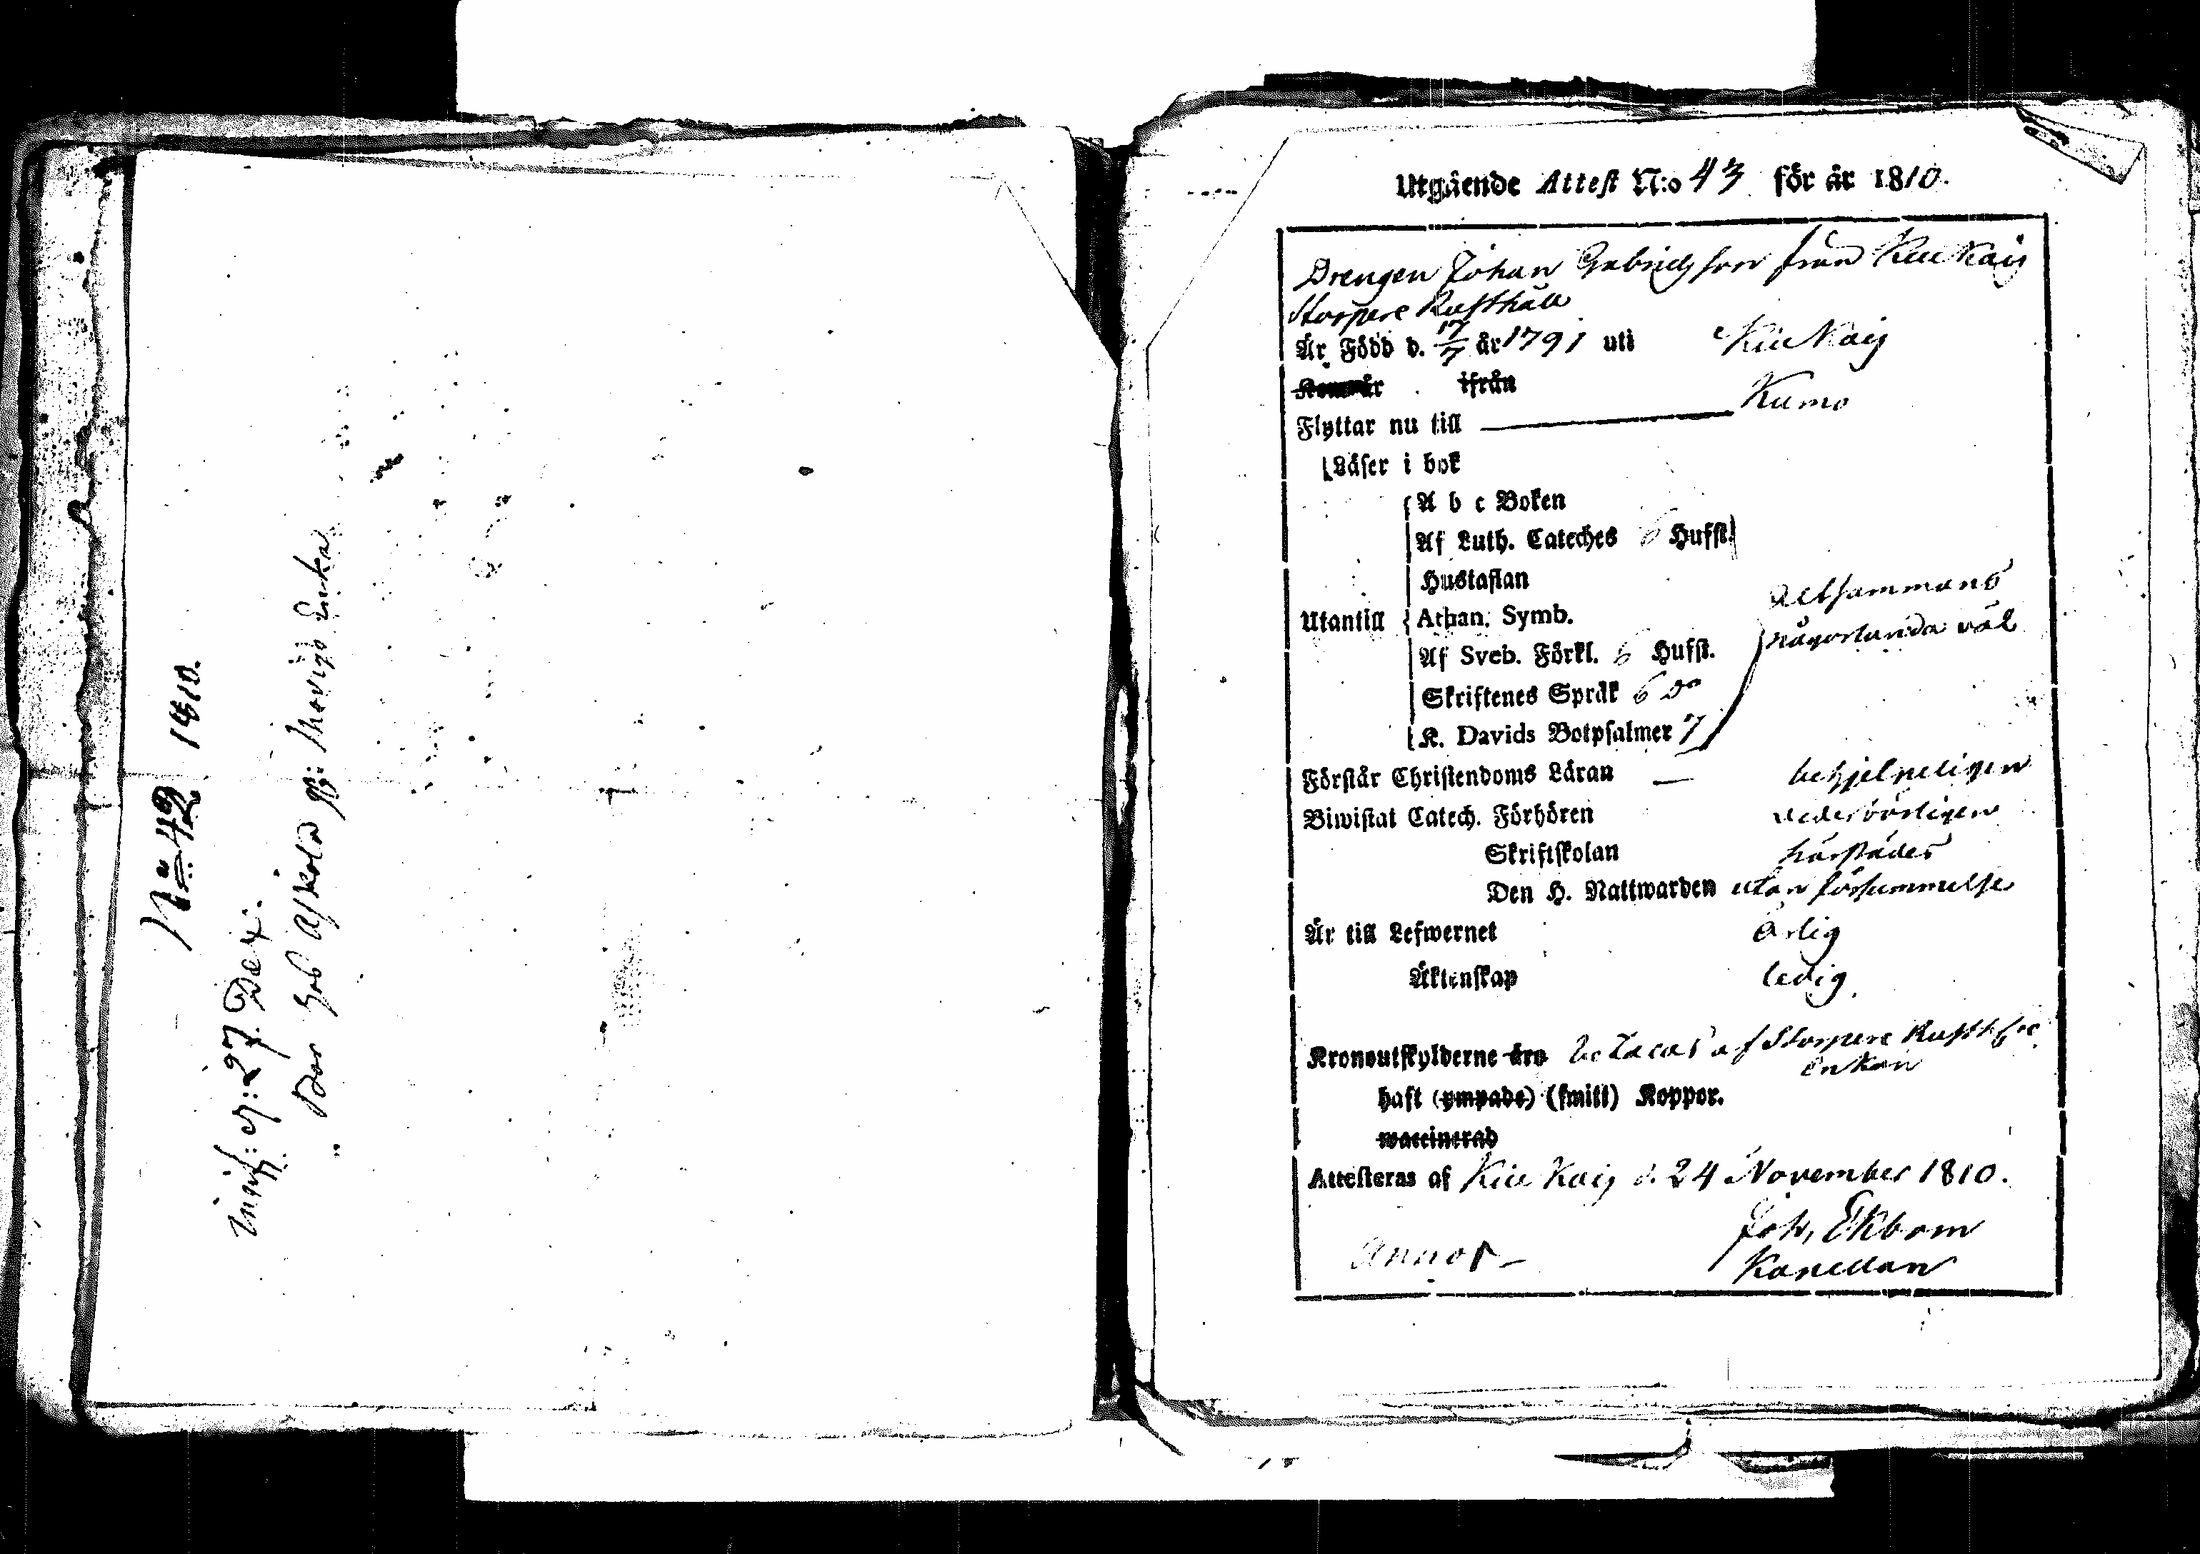 N:o 42. 1810.
d: 27 Dec:
Bor hos
Enka
Utgående Attest N:o 43 för år 1810.
Drengen Johan Gabrielsson från Kiukais
Storpere Rusthåll
Är Född d. 17/7 år 1791 uti Kiukais
Kom år ifrån
Flyttar nu till Kumo
Läser i bok
A b c Boken
Af Luth. Cateches 6 Hufst.
Hustaflan
Utantill Athan. Symb. altsammans
Af Sveb. Förkl. 6 Hufst. någorlunda väl
Skriftenes Språk 6 do
K. Davids Botpsalmer 7
Förstår Christendoms Läran — behjelpeligen
Biwistat Catech. Förhören vederbörligen
Skriftskolan härstädes
Den H. Nattwarden utan försummelse
Är till Lefwernet ärlig
Äktenskap ledig
Kronoutskylderne äro betalas af Storpere Rusth.
enkan
haft (ympade) (smitt) Koppor.
waccinerad
Attesteras af Kiukais d. 24 November 1810.
Joh. Ekbom
Annot
Kapellan